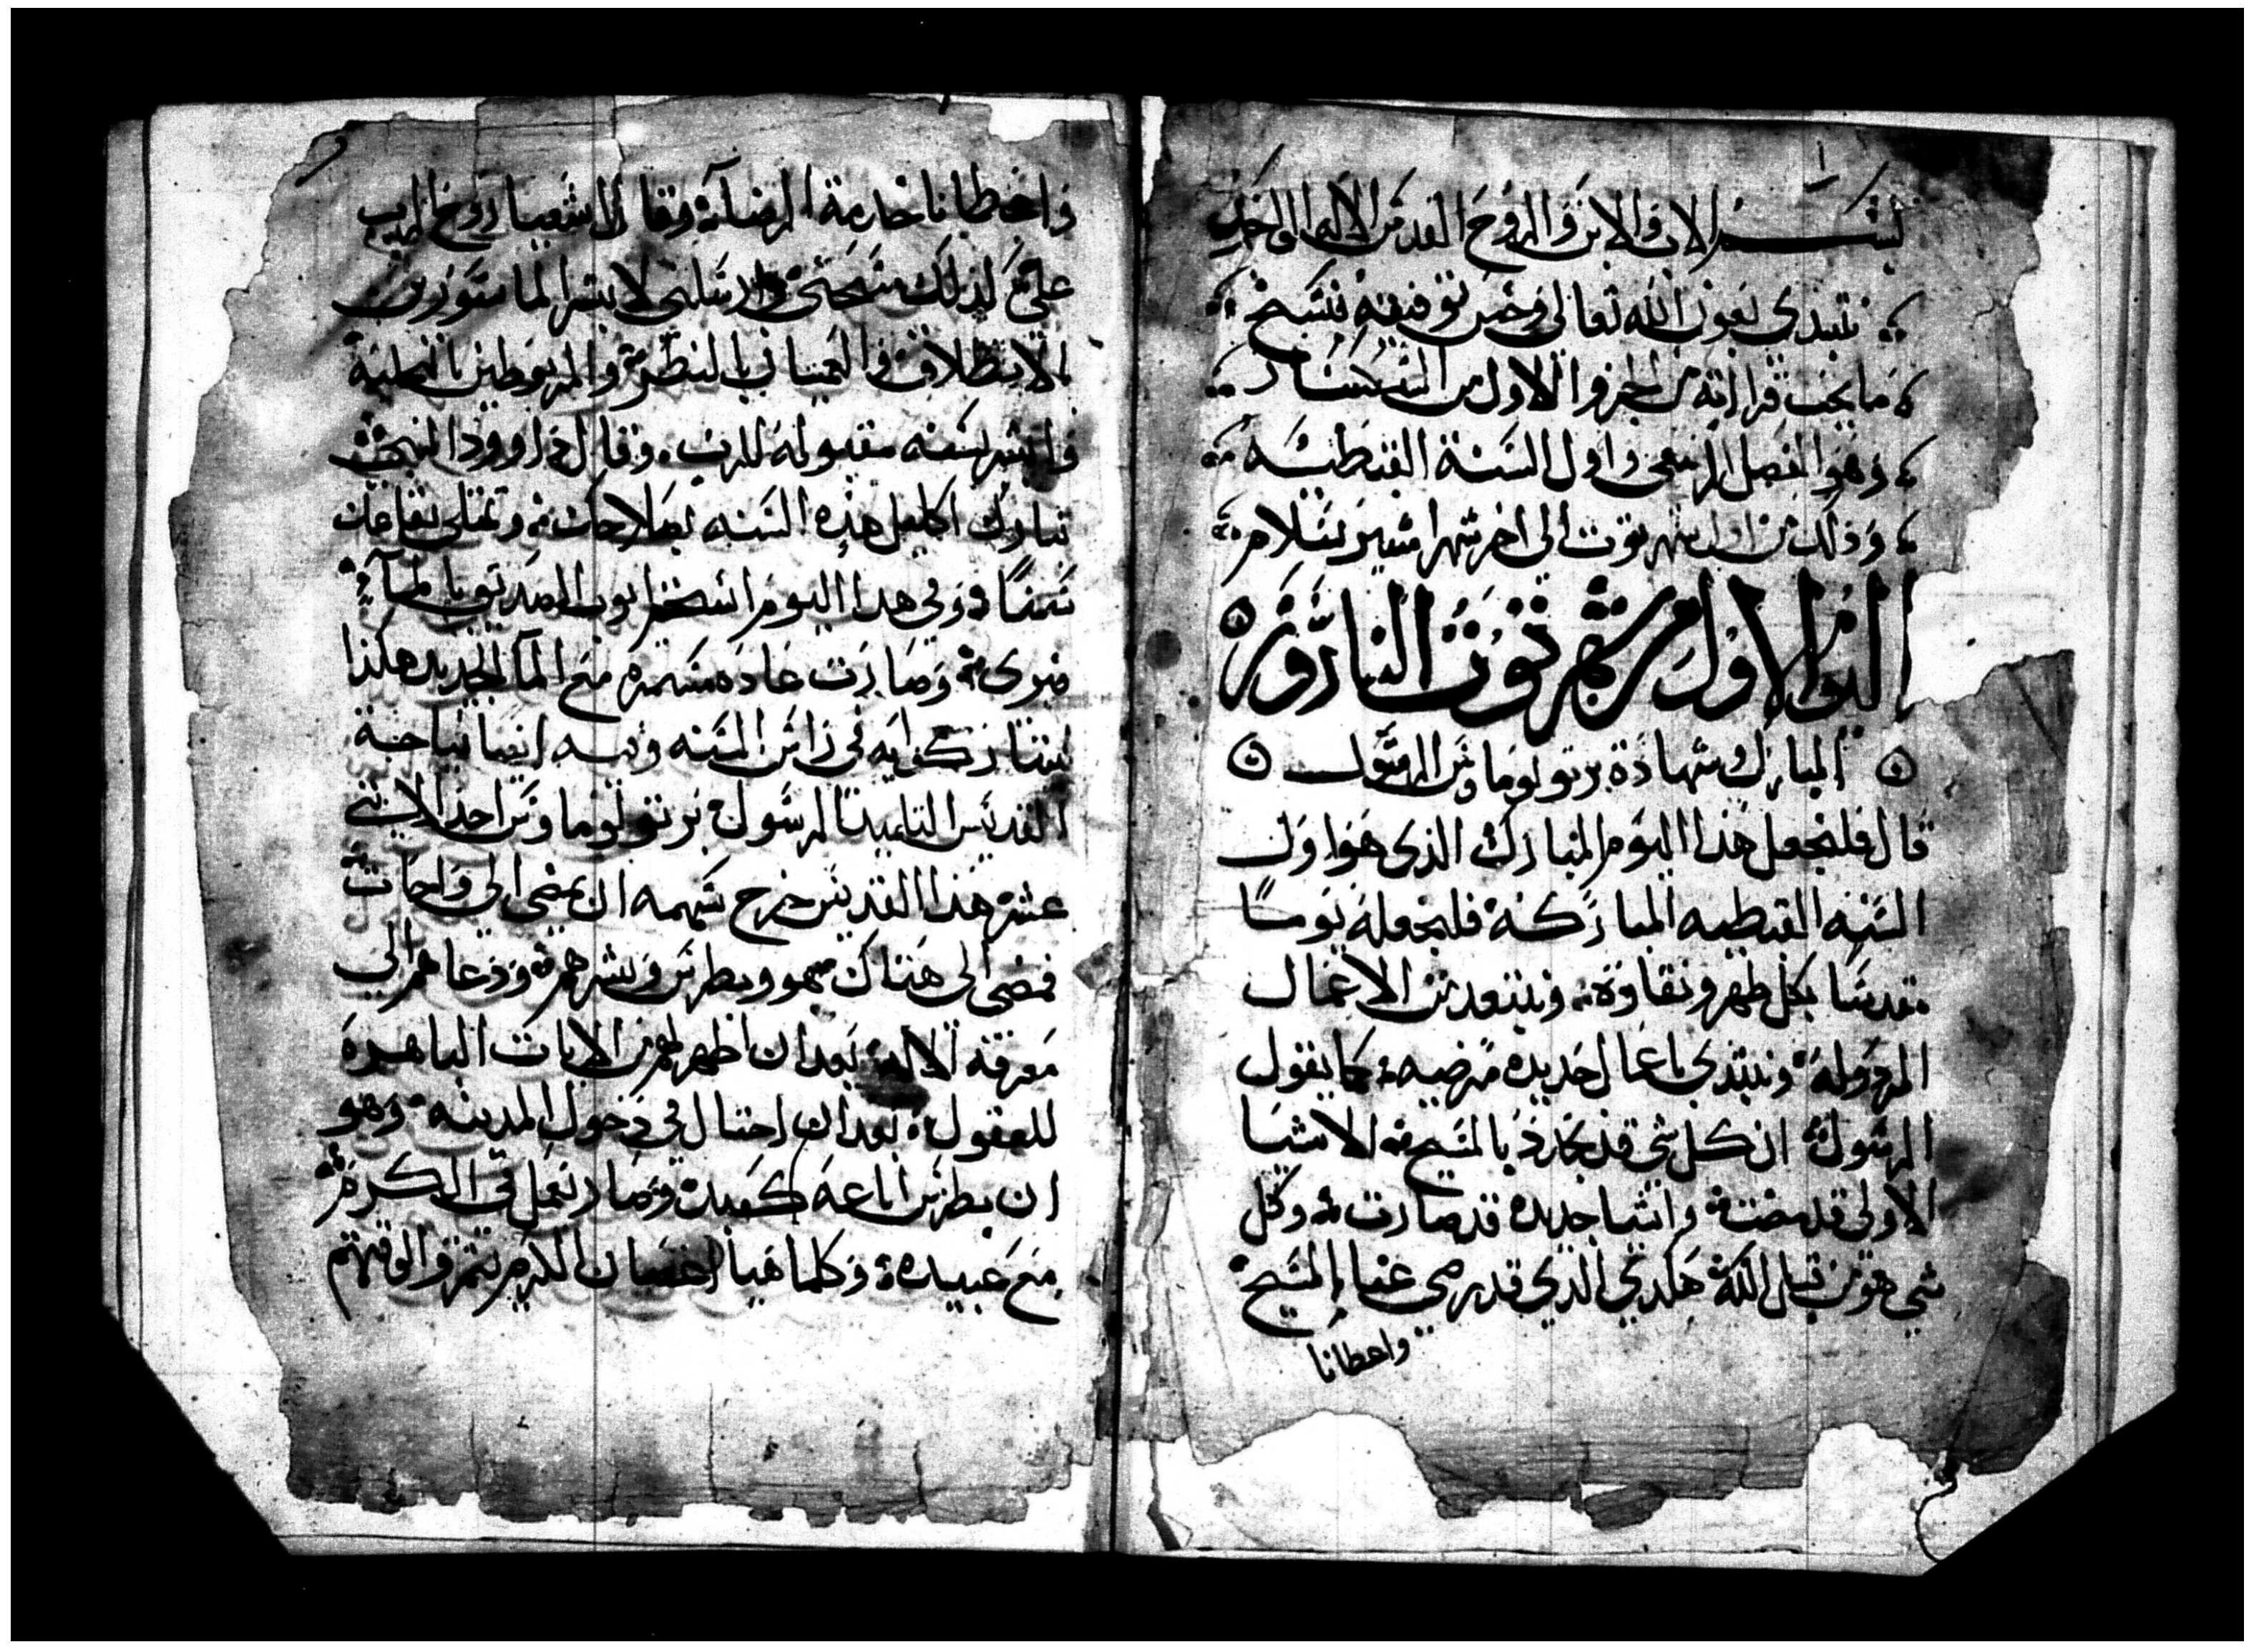 ١
بسم الاب والابن والروح القدس الاله الواحد
نبتدي بعون الله تعالى وحسن توفيقه بنسخ
ما يجب قراته من الجزو الاول من السنكسار
وهو الفصل الربيعي واول السنة القبطيه
وذلك من اول شهر توت الى اخر شهر امشير بسلام
اليوم الاول من شهر توت النيروز
المبارك شهادة برتولوماوس الرسول
قال فلنجعل هذا اليوم المبارك الذى هو اول
السنه القبطيه المباركه فلنجعله يوما
مقدسا بكل طهر ونقاوة ونبتعد من الاعمال
المردوله ونبتدي باعمال جديده مرضيه كما يقول
الرسول ان كل شي قد تجدد بالمسيح الاشيا
الاولى قد مضت واشيا جديده قد صارت وكل
شي هو من قبل الله هذا الذي قد رضي عنا بالمسيح
واعطانا
واعطانا خدمة الرضا وقال اشعيا روح الرب
علي لذلك مسحني وارسلني لابشر الماسورين
بالانطلاق والعميان بالنظر والمربوطين بالتخلية
وابشر بسنه مقبوله للرب وقال داوود النبي
تبارك اكليل هذه السنه بصلاحك وتمتلي بقاعك
سمنا وفي هذا اليوم استحم ايوب الصديق بالما
فبرى وصارت عادة مستمره مع الما الجديد هكذا
يتباركوا به في راس السنه وفيه ايضا نياحة
القديس التلميذ الرسول برتولوماوس احد الاثني
عشر هذا القديس خرج سهمه ان يمضي الى واحات
فمضى الى هناك هو وبطرس وبشرهم ودعاهم الى
معرفة الاله بعد ان اظهر لهم من الايات الباهره
للعقول بعد ان احتال في دخول المدينه وهو
ان بطرس اباعه كعبد وصار يعمل في الكرم
مع عبيده وكلما هيا اغصان الكرم يتمروا لوقتهم